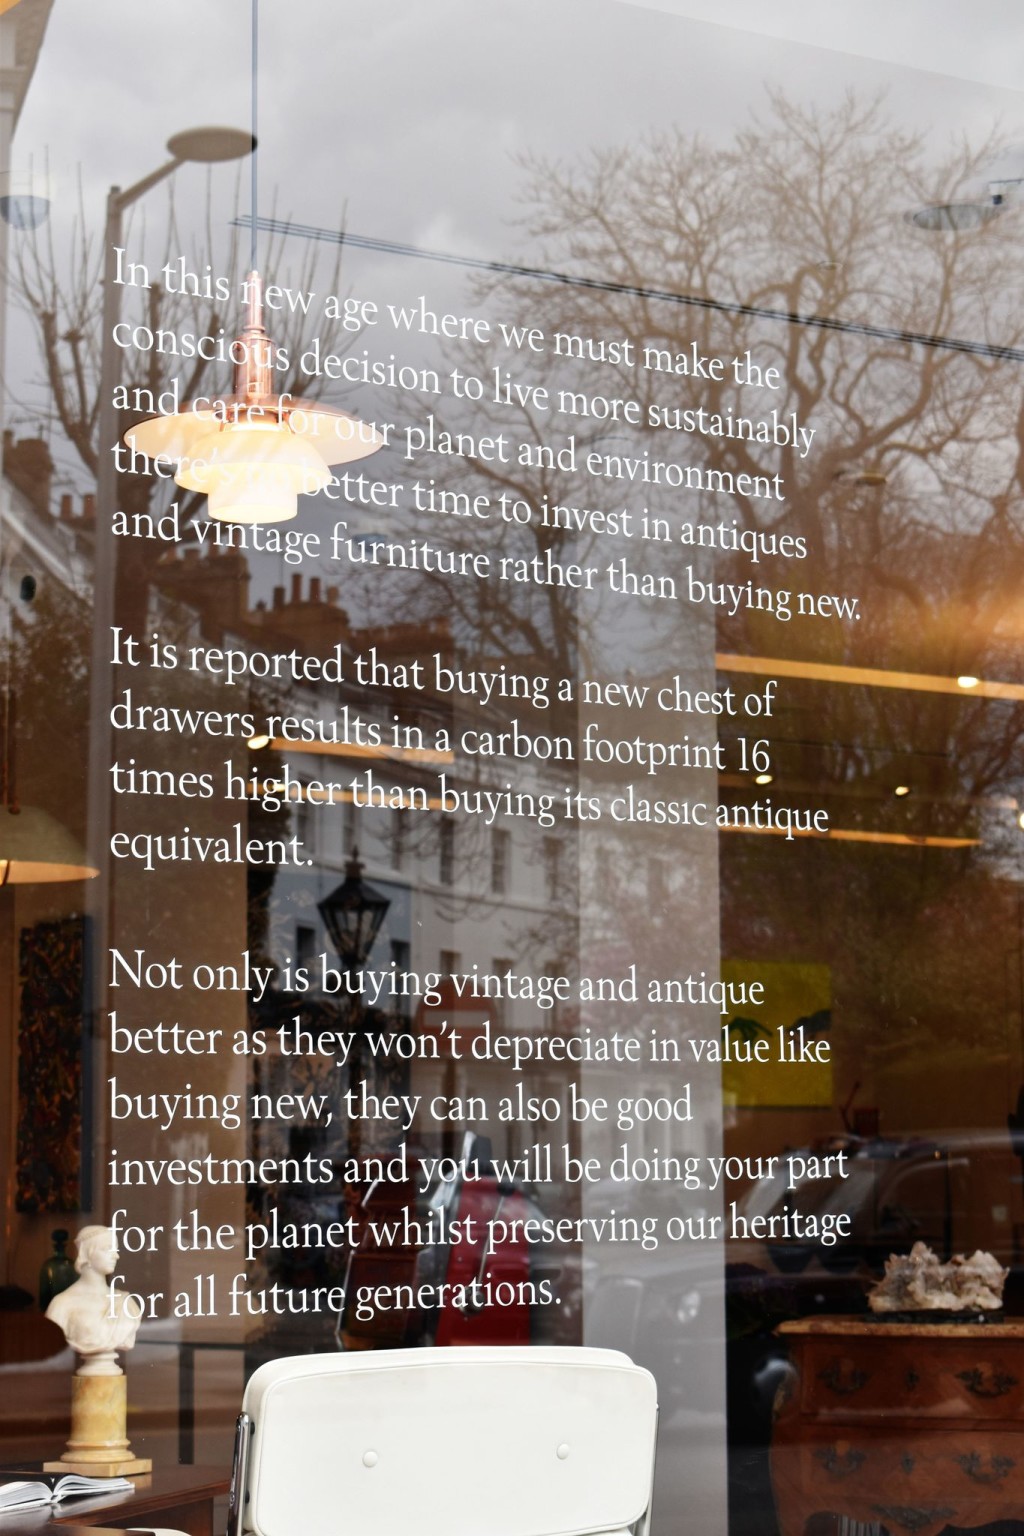 In this new age where we must make the
conscious decision to live more sustainably
and care for our planet and environment
there's no better time to invest in antiques
and vintage furniture rather than buying new.
It is reported that buying a new chest of
drawers results in a carbon footprint 16
times higher than buying its classic antique
equivalent.
Not only is buying vintage and antique
better as they won't depreciate in value like
buying new, they can also be good
investments and you will be doing your part
for the planet whilst preserving our heritage
for all future generations.